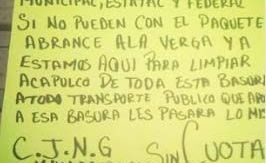 MUNICIPAL, ESTATAL Y FEDERAL
SI NO PUEDEN CON EL PAQUETE
ABRANCE ALA VERGA YA
ESTAMOS AQUI PARA LIMPIAR
ACAPULCO DE TODA ESTA BASURA
ATODO TRANSPORTE PUBLICO QUE
A ESA BASURA LES PASARA LO MIS
C.J.N.G SIN CUOTA